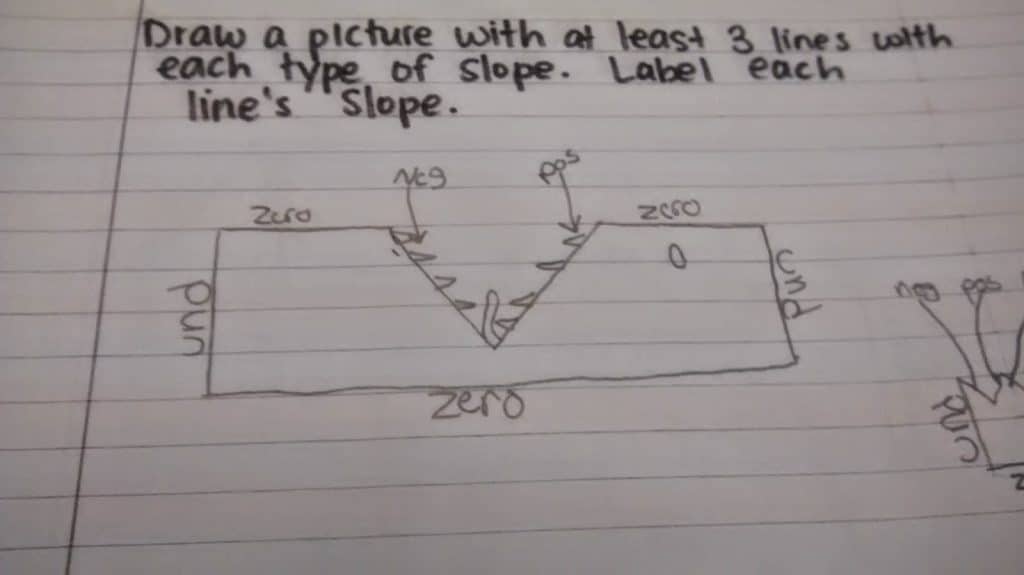 Draw a picture with at least 3 lines with
each type of slope. Label each
line's slope.
Neg
pos
zero
zero
und
0
und
zero
neg
pos
und